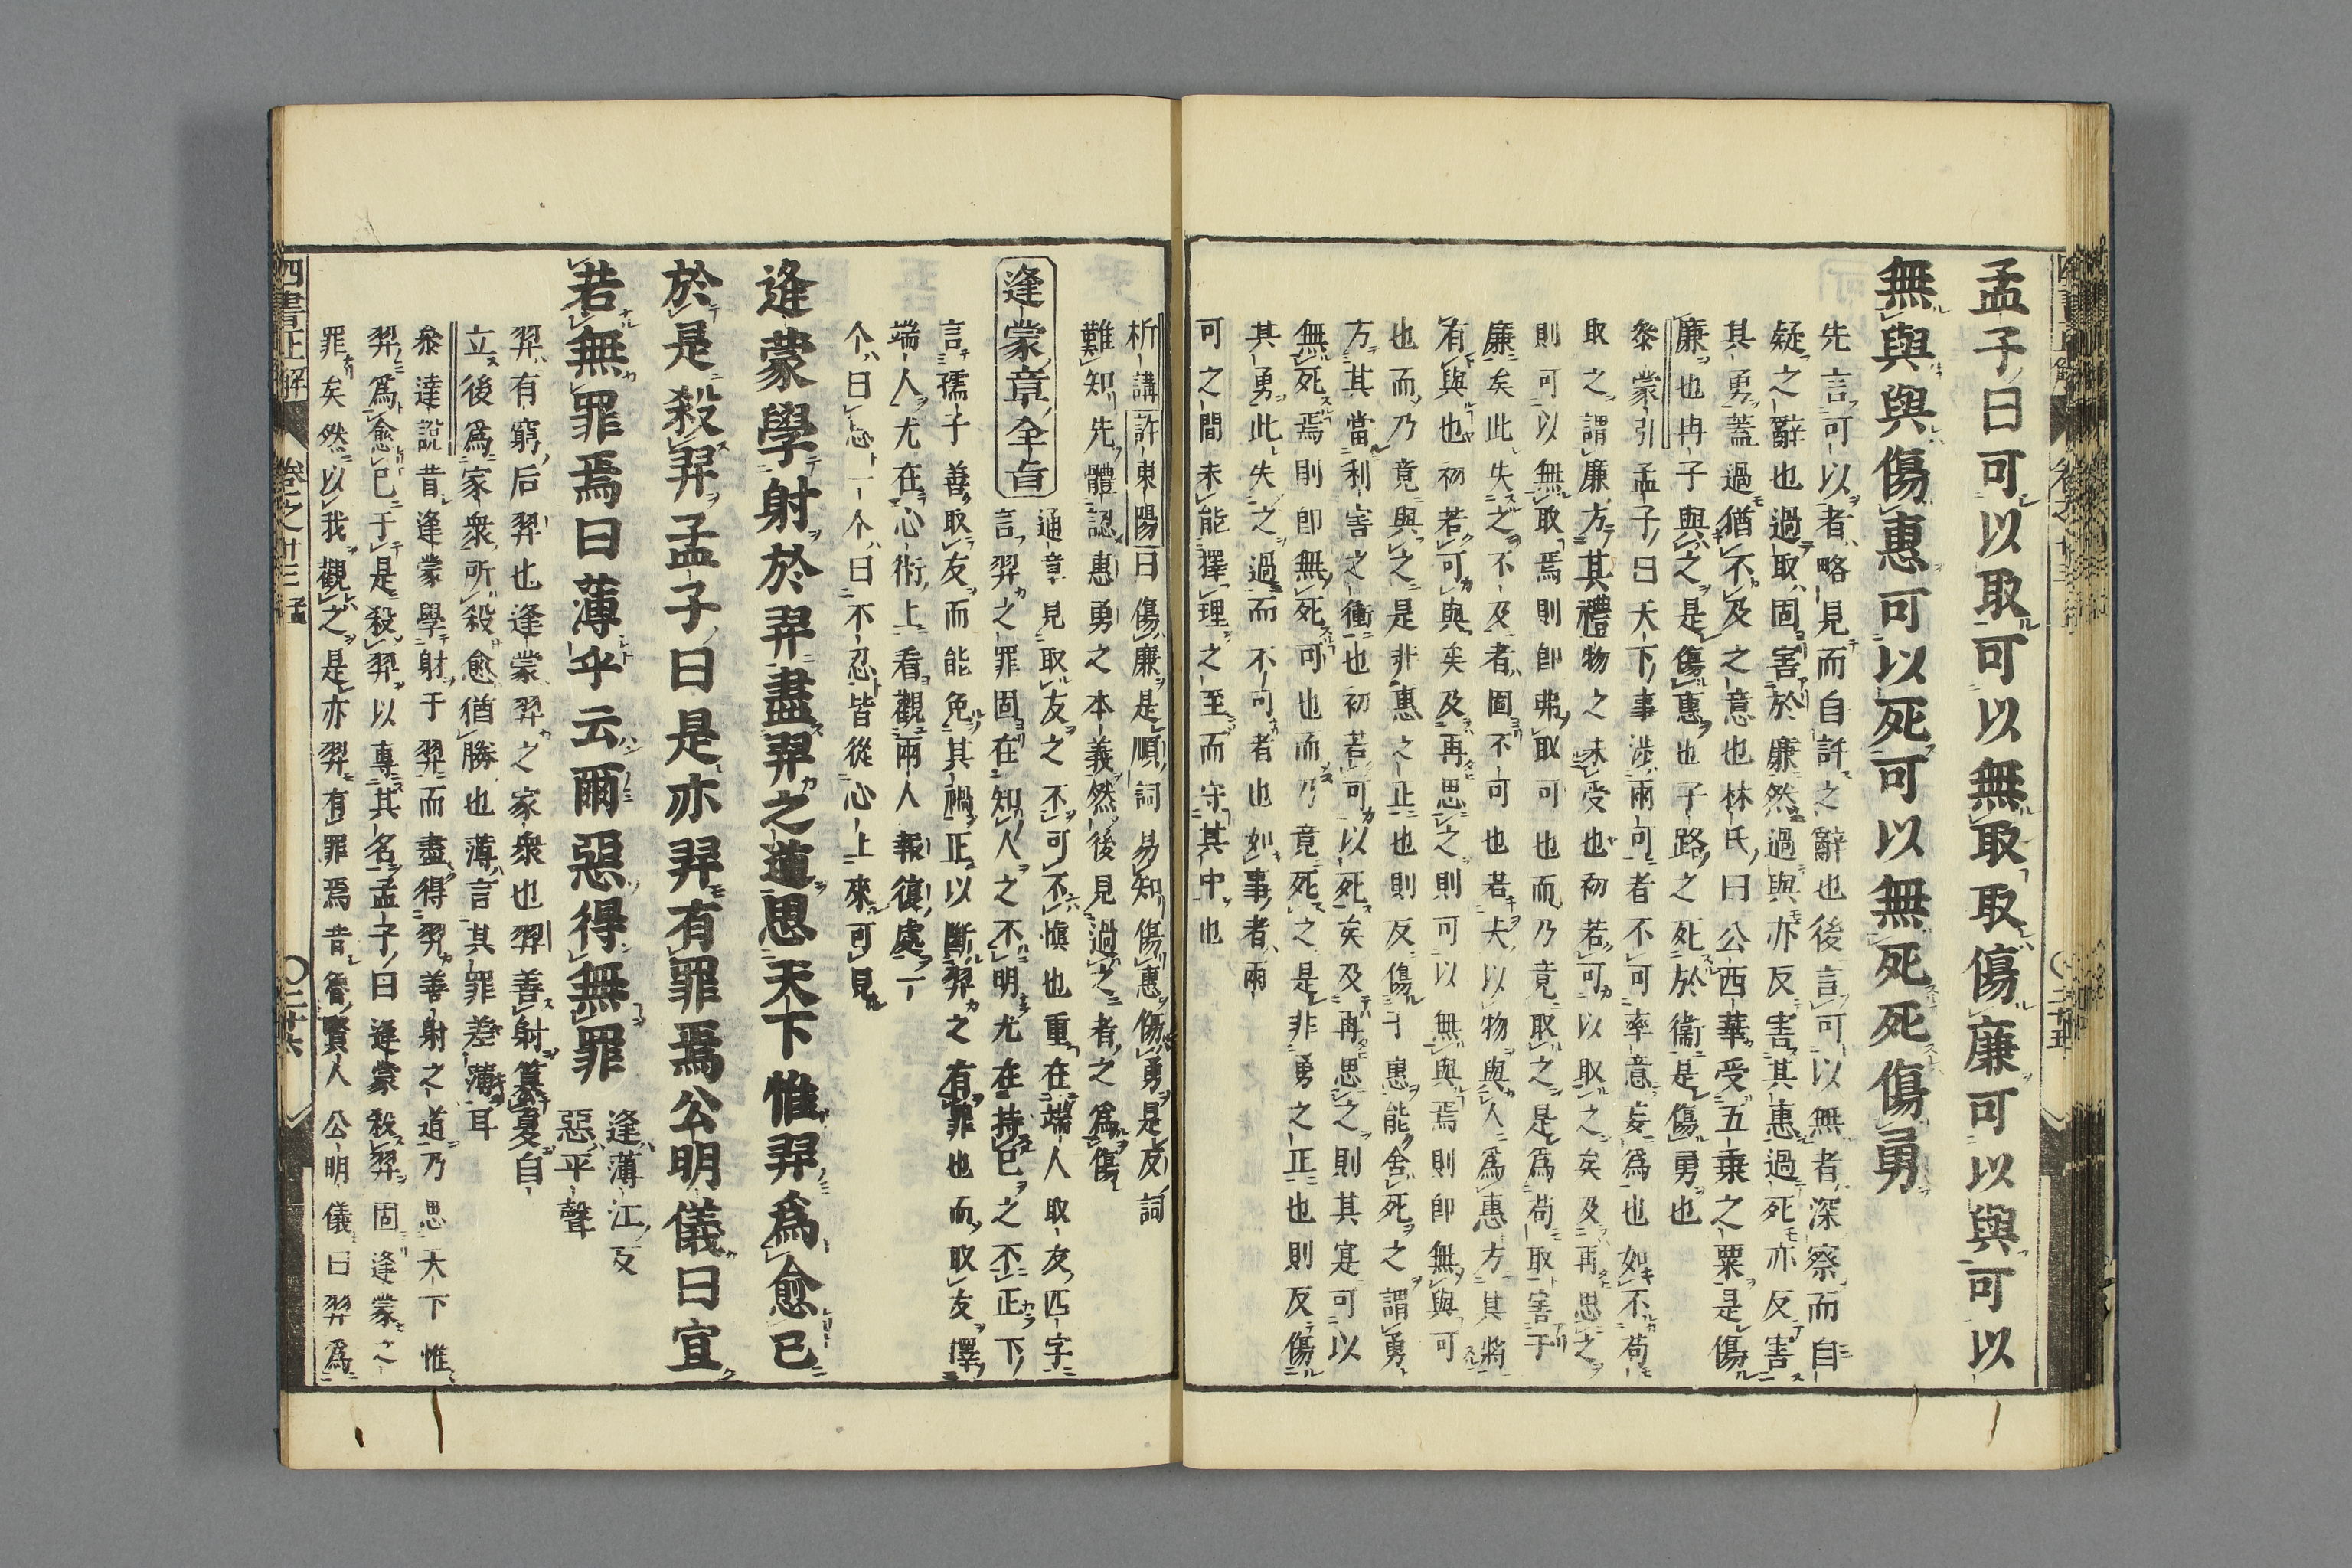 孟子曰可以取可以無取取傷廉可以與可以
無與與傷惠可以死可以無死死傷勇
先言可以者略見而自許之辭也後言可以無者深察而自
疑之辭也過取固害於廉然過與亦反害其惠過死亦反害
其勇蓋過猶不及之意也林氏曰公西華受五秉之粟是傷
廉也冉子與之是傷惠也子路之死於衞是傷勇也
叅蒙引孟子曰天下事渉兩可者不可率意妄爲也如不苟
取之謂廉方其禮物之來受也初若可以取之矣及再思之
則可以無取焉則卽弗取可也而乃竟取之是爲苟取害于
廉矣此失之不及者固不可也若夫以物與人爲惠方其將
有與也初若可與矣及再思之則可以無與焉則卽無與可
也而乃竟與之是非惠之正也則反傷于惠能舍死之謂勇
方其當利害之衝也初若可以死矣及再思之則其寔可以
無死焉則卽無死可也而乃竟死之是非勇之正也則反傷
其勇此失之過而不可者也如事者兩
可之間未能擇理之至而守其中也
析講許東陽曰傷廉是順詞易知傷惠傷勇是反詞
難知先體認惠勇之本義然後見過之者之爲傷
逢蒙章全旨
通章見取友之不可不愼也重在端人取友四字
言羿之罪固在知人之不明尤在持已之不正下
言孺子善取友而能免其禍正以斷羿之有罪也而取友擇
端人尤在心術上看觀兩人報復處一
个曰忘一个曰不忍皆從心上來可見
逢蒙學射於羿盡羿之道思天下惟羿爲愈已
於是殺羿孟子曰是亦羿有罪焉公明儀曰宜
若無罪焉曰薄乎云爾惡得無罪
逢薄江反
惡平聲
羿有窮后羿也逢蒙羿之家衆也羿善射簒夏自
立後爲家衆所殺愈猶勝也薄言其罪差薄耳
叅達說昔逢蒙學射于羿而盡得羿善射之道乃思天下惟
羿爲愈已于是殺羿以專其名孟子曰逢蒙殺羿固逢蒙之
罪矣然以我觀之是亦羿有罪焉昔魯賢人公明儀曰羿爲
四書正解
卷之十三孟
二十六